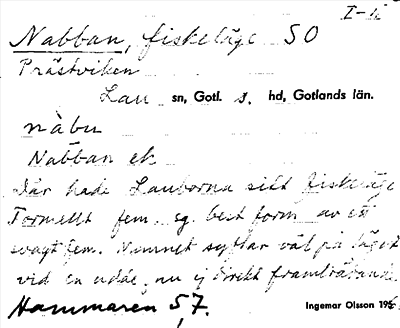 I-ii
Nabban, fiskeläge SO
Prästviken
Lau sn, Gotl. s. hd, Gotlands län.
nàbu
Nabban ek
Där hade Lauborna sitt fiskeläge
Formellt fem. sg. best form av ett
svagt fem. Namnet syftar väl på läget
vid en udde, nu ej direkt framträdande.
Hammaren 5,7.
Ingemar Olsson 195